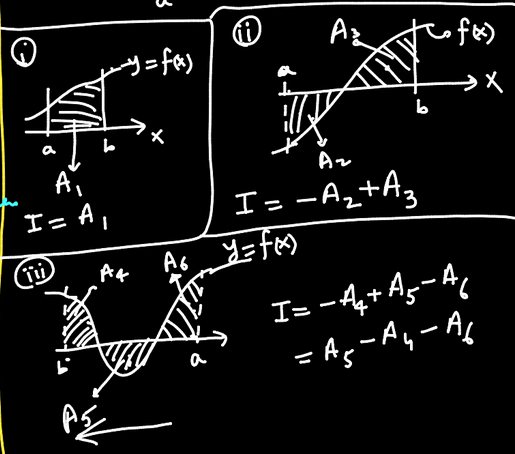 a
i
y = f(x)
a
b
x
A₁
I = A₁
ii
A₃
f(x)
a
x
b
A₂
I = -A₂ + A₃
iii
A₄
A₆
y = f(x)
b
a
A₅
I = -A₄ + A₅ - A₆
= A₅ - A₄ - A₆